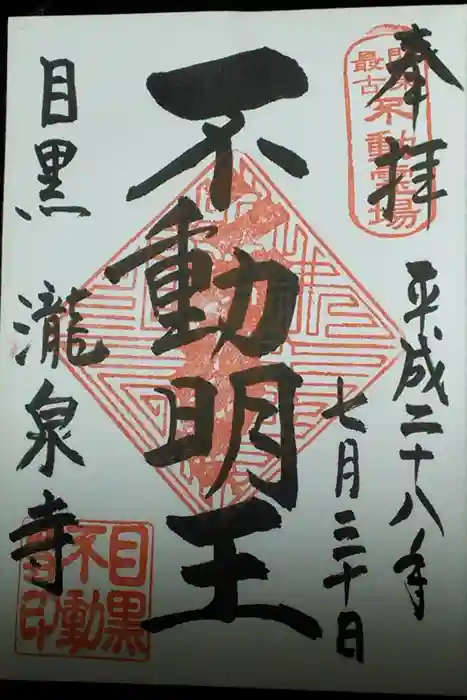 奉拝
関東
最古
不動霊場
平成二十八年
七月三十日
不動明王
目黒
瀧泉寺
目黒
不動